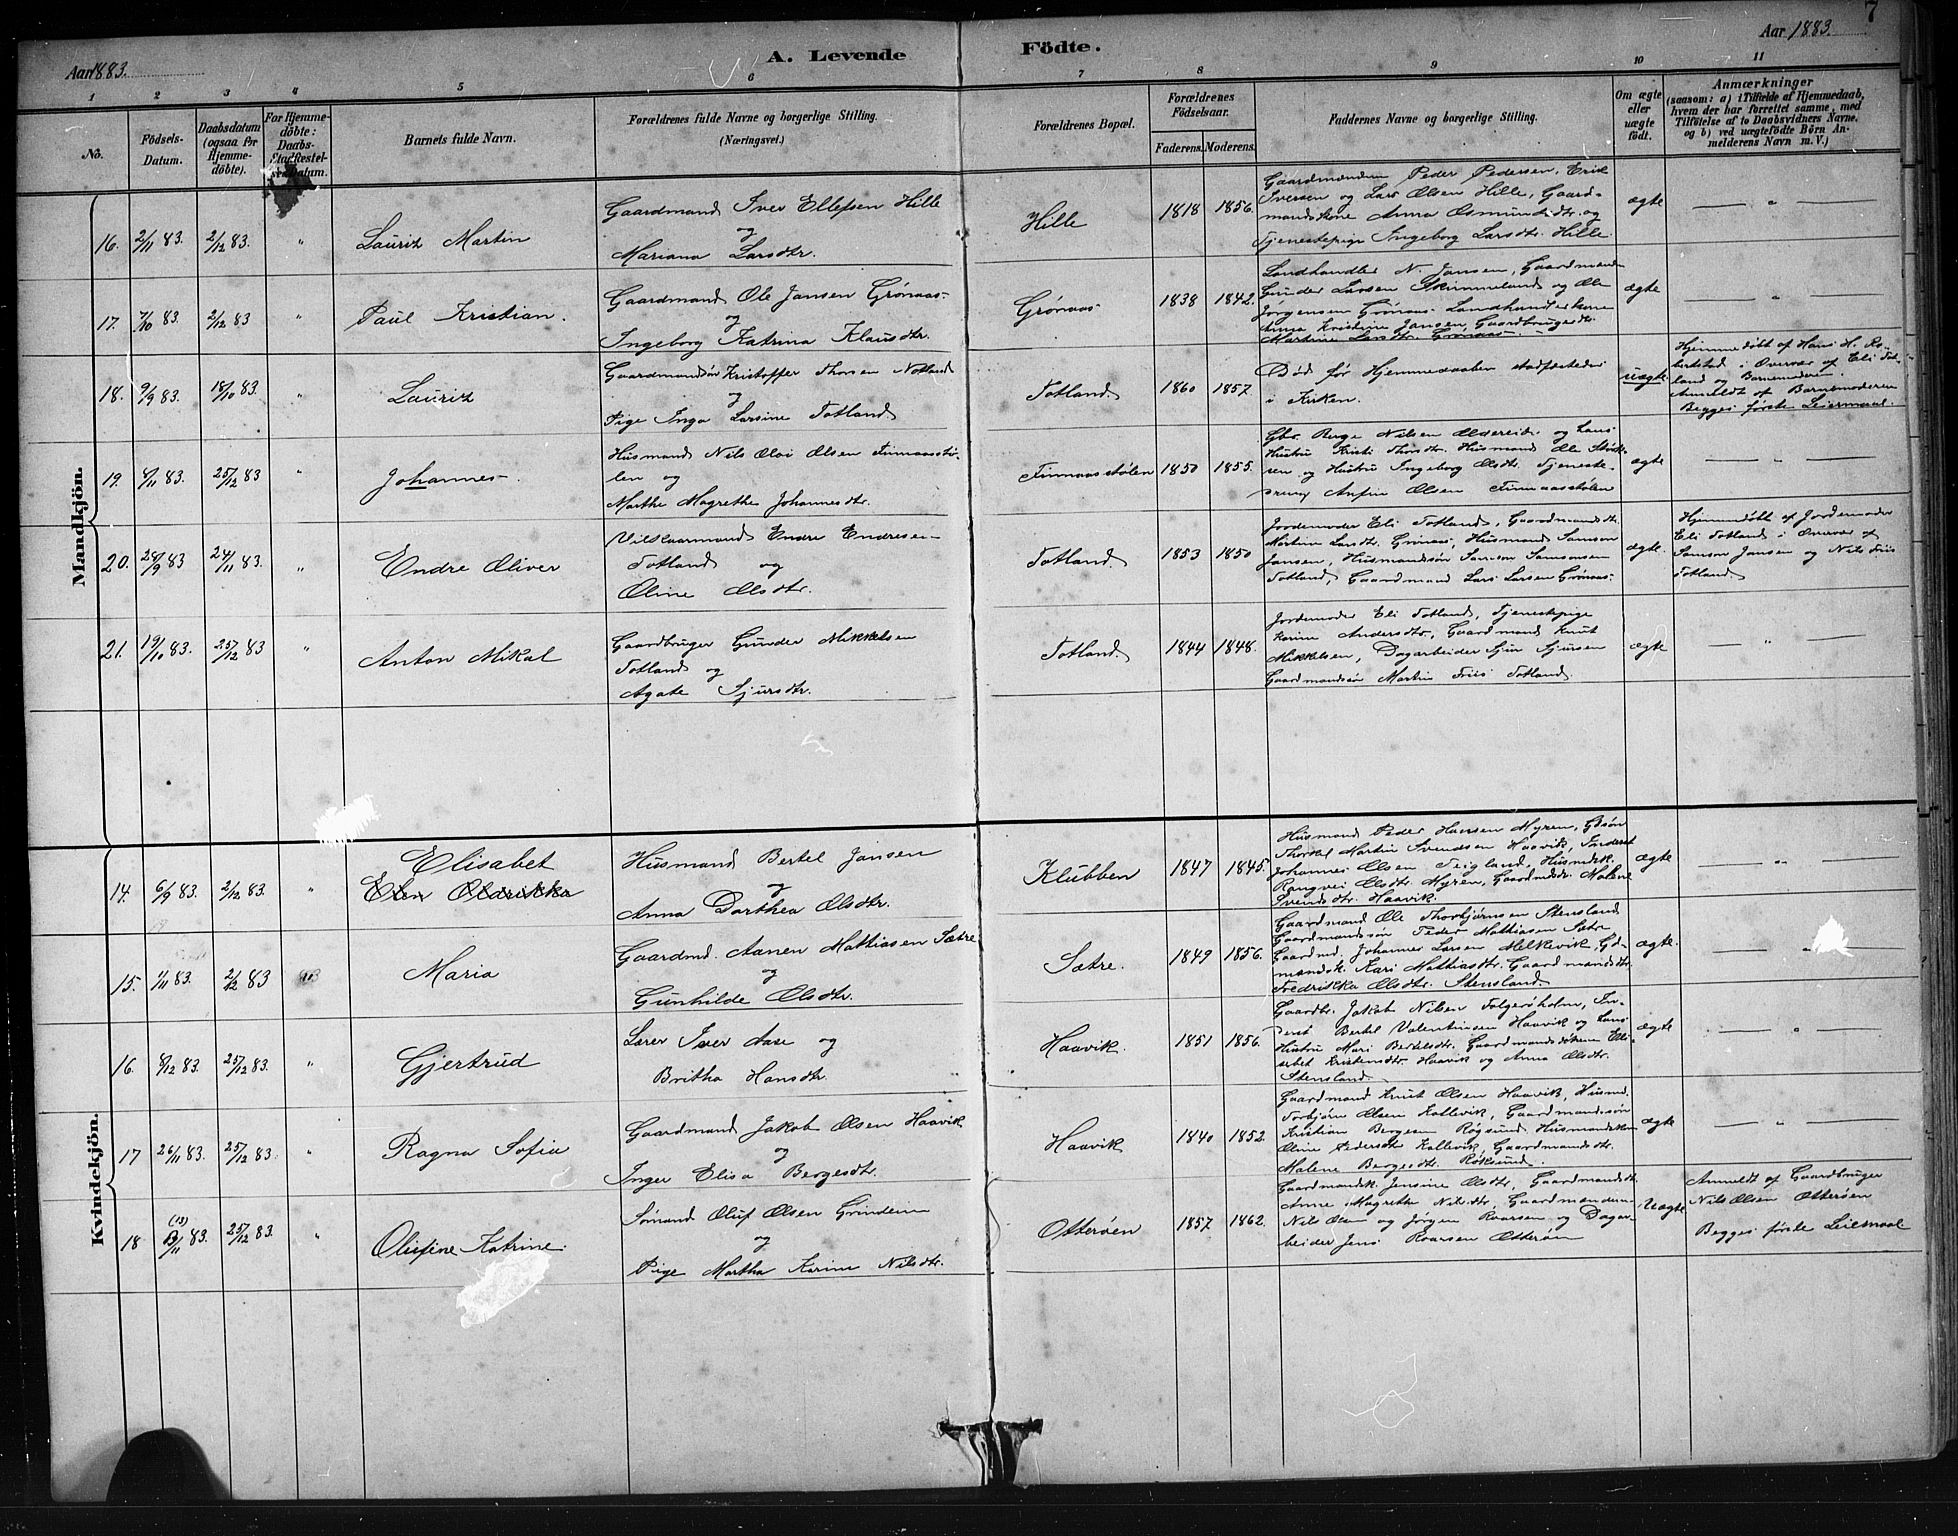 7
Aar 1883.
A. Levende
Födte.
Aar 1883.
1 2 3 4 5 6 7 8 9 10 11
No.
Födsels-
Datum.
Daabsdatum
(ogsaa for
Hjemme-
døbte).
For Hjemme-
döbte:
Daabs-
Barnets fulde Navn.
Forældrenes fulde Navne og borgerlige Stilling.
(Næringsvei.)
Forældrenes Bopæl.
Forældrenes
Födselsaar.
Faderens. Moderens.
Faddernes Navne og borgerlige Stilling.
Om ægte
eller
uægte
födt.
Anmærkninger
(saasom: a) i Tilfælde af Hjemmedaab,
hvem der har forrettet samme, med
Tilföielse af to Daabsvidners Navne,
og b) ved uægtefödte Börn An-
melderens Navn m. V.)
Mandkjön.
16. 2/11 83. 2/12 83. " Lauriz Martin
Gaardmand Iver Ellefsen Hille
og
Mariana Larsdtr.
Hille 1818 1856.
Gaardmændene Peder Pedersen, Erik
Iversen og Lars Olsen Hille, Gaard-
mandskone Anna Osmundsdtr. og
Tjenestepige Ingeborg Larsdtr. Hille.
ægte — " —
17. 7/10 83. 2/12 83 " Paul Kristian.
Gaardmand Ole Jansen Grønaas
og
Ingeborg Katrina Klausdtr.
Grønaas 1838 1842.
Landhandler N. Jansen, Gaardmænd
Gunder Larsen Skimmeland og Ole
Jørgensen Grønaas. Landhandlerkone
Anna Kristine Jansen, Gaardbrugerdtr.
Martine Larsdtr. Grønaas
ægte — " —
18. 9/9 83. 18/10 83. " Lauriz
Gaardmandsøn Kristoffer Thorsen Notland
og
Pige Inga Larsine Totland
Totland. 1860 1857.
Død før Hjemmedaaben stadfæstedes
i Kirken.
uægte.
Hjemmedøbt af Hans H. Ro-
berkstad i Overvær af Eli Tot-
land og Barnemoderen.
Anmeldt af Barnemoderen
Begges første Leiermaal.
19. 4/11 83. 25/12 83 " Johannes
Husmand Nils Olai Olsen Finnaasstø-
len og
Marthe Magrethe Johannesdtr.
Finnaasstølen 1850 1855.
Gbr. Berge Nilsen Oldereide og hans
Hustru Kristi Thordtr. Husmand Ole
sen og Hustru Ingeborg Olsdtr. Tjeneste-
dreng Anfin Olsen Finnaasstølen
ægte — " —
20. 28/9 83 24/11 83. " Endre Oliver
Vilkaarmand Endre Endresen
Totland og
Oline Olsdtr.
Totland. 1853 1850
Jordemoder Eli Totland, Gaardmandsdtr.
Martine Larsdtr. Grønaas, Husmand Samson
Jansen, Husmandsøn Samson Samsonsen
Totland, Gaardmand Lars Larsen Grønaas
ægte.
Hjemmedøbt af Jordemoder
Eli Totland i Overvær af
Samson Jansen og Nils Friis
Totland.
21. 19/10 83. 25/12 83 " Anton Mikal
Gaardbruger Gunder Mikkelsen
Totland og
Agate Sjursdtr.
Totland. 1844 1848.
Jordemoder Eli Totland, Tjenestepige
Karine Andersdtr., Gaardmand Knut
Mikkelsen, Dagarbeider Sjur Sjursen
Gaardmandsøn Martin Friis Totland.
ægte — " —
Kvindekjön.
14. 6/9 83. 2/12 83. " Elisabet
Elen Oldrikka
Husmand Bertel Jansen
og
Anna Dorthea Olsdtr.
Klubben 1847 1845.
Husmand Peder Hansen Myren, Gdsøn
Thorkel Martin Svendsen Haavik, Inderst
Johannes Olsen Teigland, Husmdsk.
Rangvei Olsdtr. Myren, Gaardmdsdtr. Malene
Svendsdtr. Haavik.
ægte — " —
15. 1/11 83. 2/12 83 " Maria
Gaardmd. Aanen Mattiasen Sætre
og
Gunhilde Olsdtr.
Sætre. 1849 1856.
Gaardmand Ole Thorbjørnsen Stensland
Gaardmandsøn Peder Mattiasen Sætre
Gaardmd. Johannes Larsen Melkevik, Gd-
mandsk. Kari Mattiasdtr. Gaardmandsdtr.
Fredrikka Olsdtr. Stensland
ægte. — " —
16. 8/12 83. 25/12 83. " Gjertrud
Lærer Iver Aase og
Britha Hansdtr.
Haavik. 1851 1856.
Gaardbr. Jakob Nilsen Folgerøholm, In-
derst Bertel Valentinsen Haavik og hans
Hustru Mari Bertelsdtr. Gaardmandsdøtrene Eli-
sabet Kristensdtr. Haavik og Anna Olsdtr.
Stensland.
ægte — " —
17 26/11 83. 25/12 83. " Ragna Sofia
Gaardmand Jakob Olsen Haavik
og
Inger Elisa Bergesdtr.
Haavik 1840 1852.
Gaardmand Knut Olsen Haavik, Husmd.
Torbjørn Olsen Kallevik, Gaardmandsøn
Kristian Bergesen Røgsund, Husmandskone
Oline Pedersdtr. Kallevik, Gaardmandsdtr.
Malene Bergesdtr. Røksund.
ægte — " —
18 (13) 13/11 83. 25/12 83. " Olufine Katrine
Sømand Oluf Olsen Grindeim
og
Pige Martha Karine Nilsdtr.
Otterøen 1857 1862.
Gaardmandsk. Jensine Olsdtr., Gaardmandsdtr.
Anne Magrethe Nilsdtr., Gaardmændene
Nils Olsen og Jørgen Roarsen og Dagar-
beider Jens Roarsen Otterøen
Uægte
Anmeldt af Gaardbruger
Nils Olsen Otterøen
Begges første Leiermaal